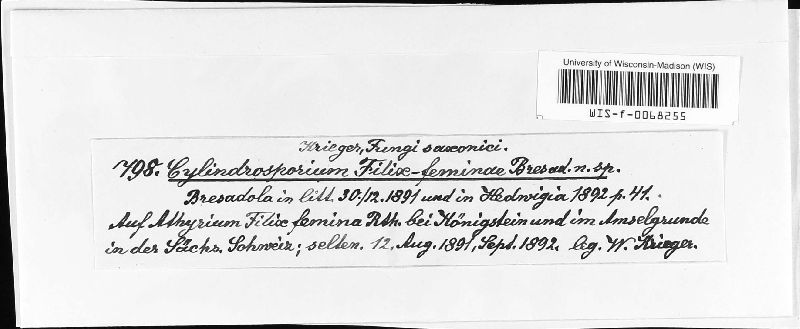 University of Wisconsin-Madison (WIS)
WIS-f-0068255
Krieger, Fungi saxonici.
798. Cylindrosporium Filix-feminae Bresad. n. sp.
Bresadola in litt. 30./12. 1891 und in Hedwigia 1892 p. 41.
Auf Athyrium Filix femina Rth. bei Königstein und im Amselgrunde
in der Sächs. Schweiz; selten. 12. Aug. 1891, Sept. 1892. leg. W. Krieger.